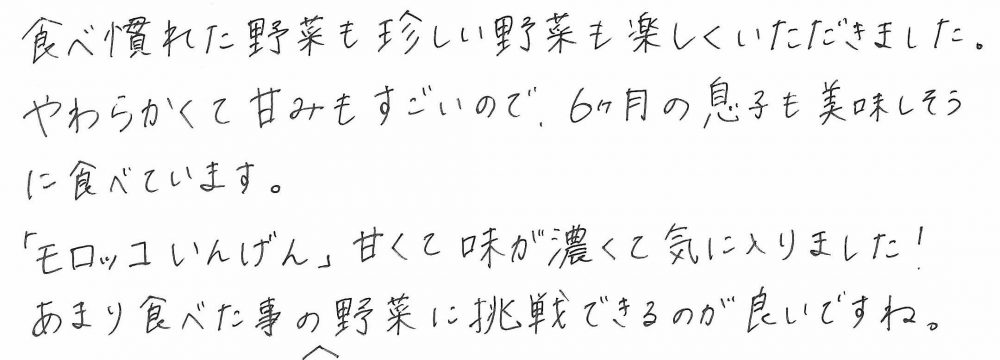 食べ慣れた野菜も珍しい野菜も楽しくいただきました。
やわらかくて甘みもすごいので、6ヶ月の息子も美味しそう
に食べています。
「モロッコいんげん」甘くて味が濃くて気に入りました!
あまり食べた事の野菜に挑戦できるのが良いですね。